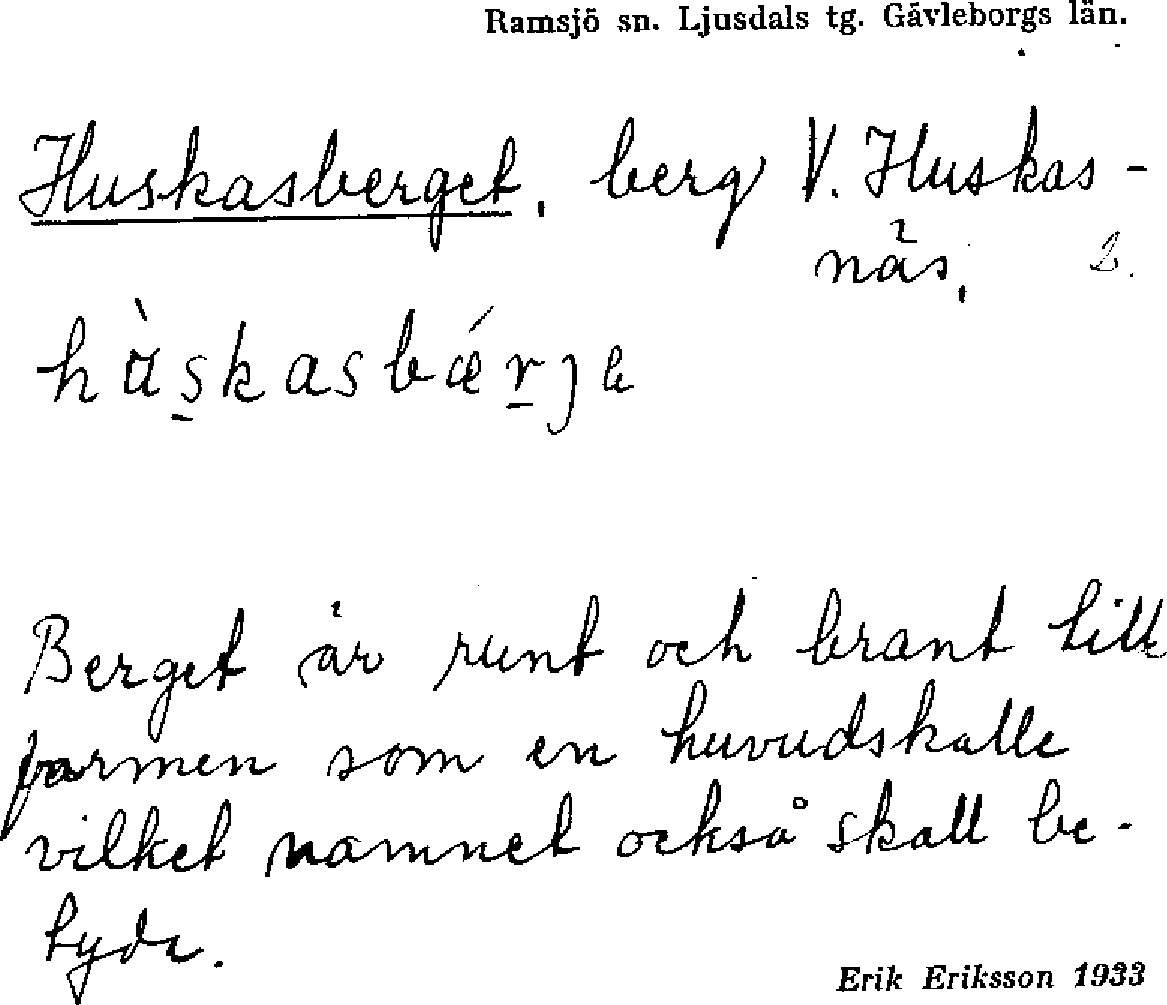 Ramsjö sn. Ljusdals tg. Gävleborgs län.
Huskasberget, berg V. Huskas-
näs,
hùskasbǽrje
Berget är runt och brant till
formen som en huvudskalle
vilket namnet också skall be-
tyda.
Erik Eriksson 1933